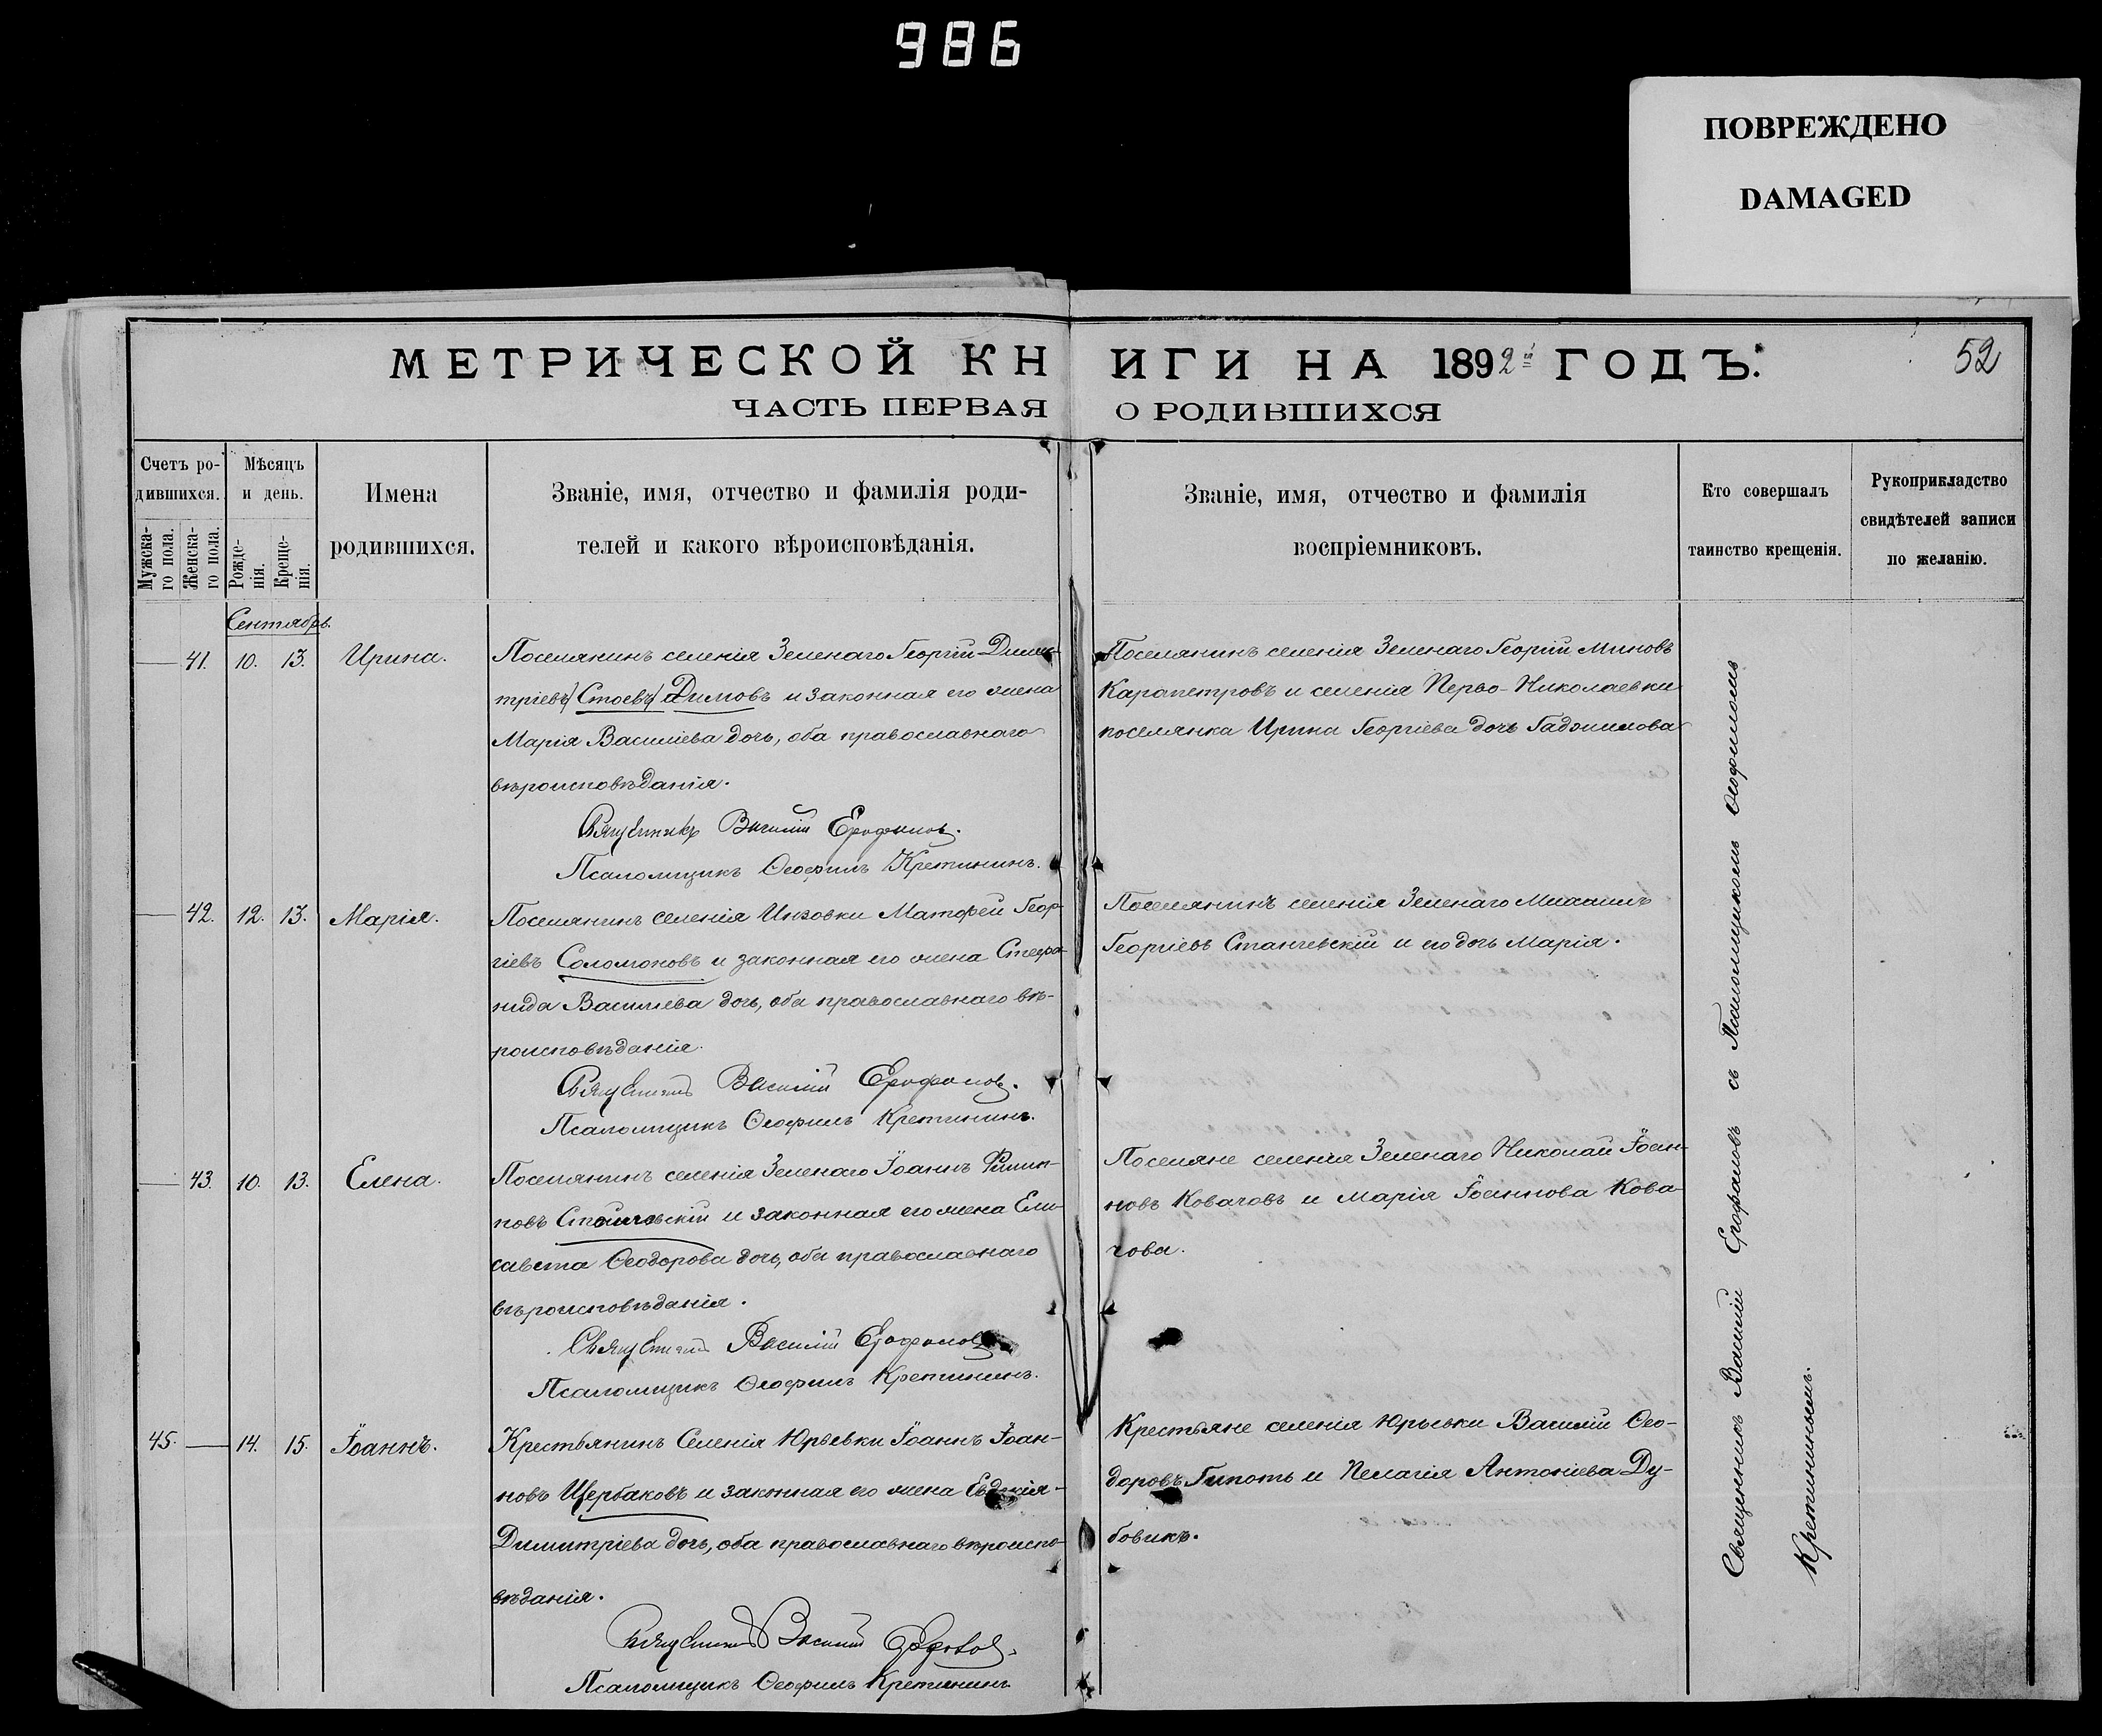 986
ПОВРЕЖДЕНО
DAMAGED
МЕТРИЧЕСКОЙ КНИГИ НА 1892й ГОДЪ.
52
ЧАСТЬ ПЕРВАЯ О РОДИВШИХСЯ
Счетъ ро-
дившихся.
Мужска-
го пола.
Женска-
го пола.
Мѣсяцъ
и день.
Рожде-
нія.
Креще-
нія.
Имена
родившихся.
Званіе, имя, отчество и фамилія роди-
телей и какого вѣроисповѣданія.
Званіе, имя, отчество и фамилія
воспріемниковъ.
Кто совершалъ
таинство крещенія.
Рукоприкладство
свидѣтелей записи
по желанію.
Сентябрь.
41. 10. 13. Ирина.
Поселянинъ селенія Зеленаго Георгій Дими-
тріевъ (Стоевъ) Димовъ и законная его жена
Марія Василіева дочь, оба православнаго
вѣроисповѣданія.
Священникъ Василій Ерофаловъ.
Псаломщикъ Ѳеофилъ Кретининъ.
Поселянинъ селенія Зеленаго Георгій Миновъ
Карапетровъ и селенія Перво-Николаевки
поселянка Ирина Георгіева дочь
42. 12. 13. Марія.
Поселянинъ селенія Инзовки Матфей Геор-
гіевъ Соломоновъ и законная его жена Стефа-
нида Василіева дочь, оба православнаго вѣ-
роисповѣданія.
Священникъ Василій Ерофаловъ.
Псаломщикъ Ѳеофилъ Кретининъ.
Поселянинъ селенія Зеленаго Михаилъ
Георгіевъ Станчевскій и его дочь Марія.
43. 10. 13. Елена.
Поселянинъ селенія Зеленаго Іоаннъ Филип-
повъ и законная его жена Ели-
савета Ѳеодорова дочь, оба православнаго
вѣроисповѣданія.
Священникъ Василій Ерофаловъ
Псаломщикъ Ѳеофилъ Кретининъ.
Поселяне селенія Зеленаго Николай Іоан-
новъ Ковачовъ и Марія Іоаннова Кова-
чова.
45. 14. 15. Іоаннъ.
Крестьянинъ Селенія Юрьевки Іоаннъ Іоан-
новъ Щербаковъ и законная его жена Евдокія
Димитріева дочь, оба православнаго вѣроиспо-
вѣданія.
Священникъ Василій Ерофаловъ.
Псаломщикъ Ѳеофилъ Кретининъ.
Крестьяне селенія Юрьевки Василій Ѳео-
доровъ и Пелагія Антоніева Ду-
бовикъ.
Священникъ Василій Ерофаловъ съ Псаломщикомъ Ѳеофиломъ
Кретининымъ.